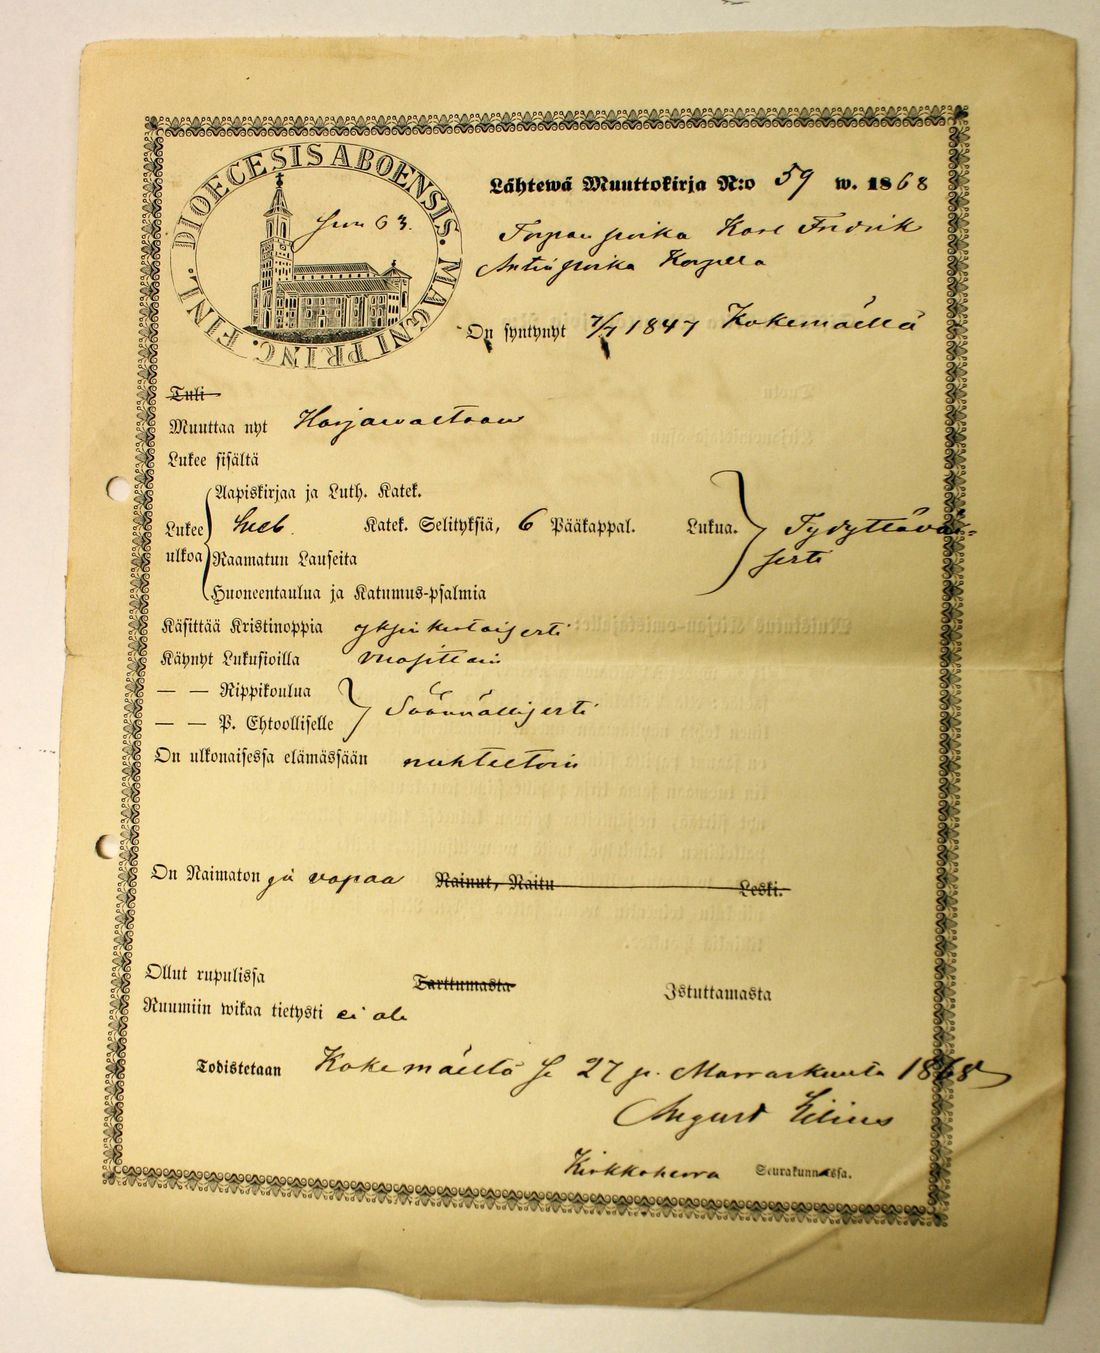 DIOECESIS ABOENSIS. MAGNI PRINC. FINL.
63.
Lähtewä Muuttokirja N:o 59 w. 1868
Torpan poika Karl Fredrik
Antinpoika Korpella
On syntynyt 7/7 1847 Kokemäellä
Tuli
Muuttaa nyt Harjawaltaan
Lukee sisältä
Aapiskirjaa ja Luth. Katek.
Lukee Sveb. Katek. Selityksiä, 6 Pääkappal. Lukua. Tydyttäväi-
ulkoa Raamatun Lauseita sesti
Huoneentaulua ja Katumus-psalmia
Käsittää Kristinoppia yksinkertaisesti
Käynyt Lukusioilla vuosittain
— — Rippikoulua
— — P. Ehtoolliselle Säännöllisesti
On ulkonaisessa elämässään nuhteetoin
On Naimaton ja vapaa Nainut, Naitu Leski.
Ollut rupulissa Tarttumasta Istuttamasta
Ruumiin wikaa tietysti ei ole
Todistetaan Kokemäeltä se 27 p. Marraskuuta 1868
August Lilius
Kirkkoherra Seurakunnassa.